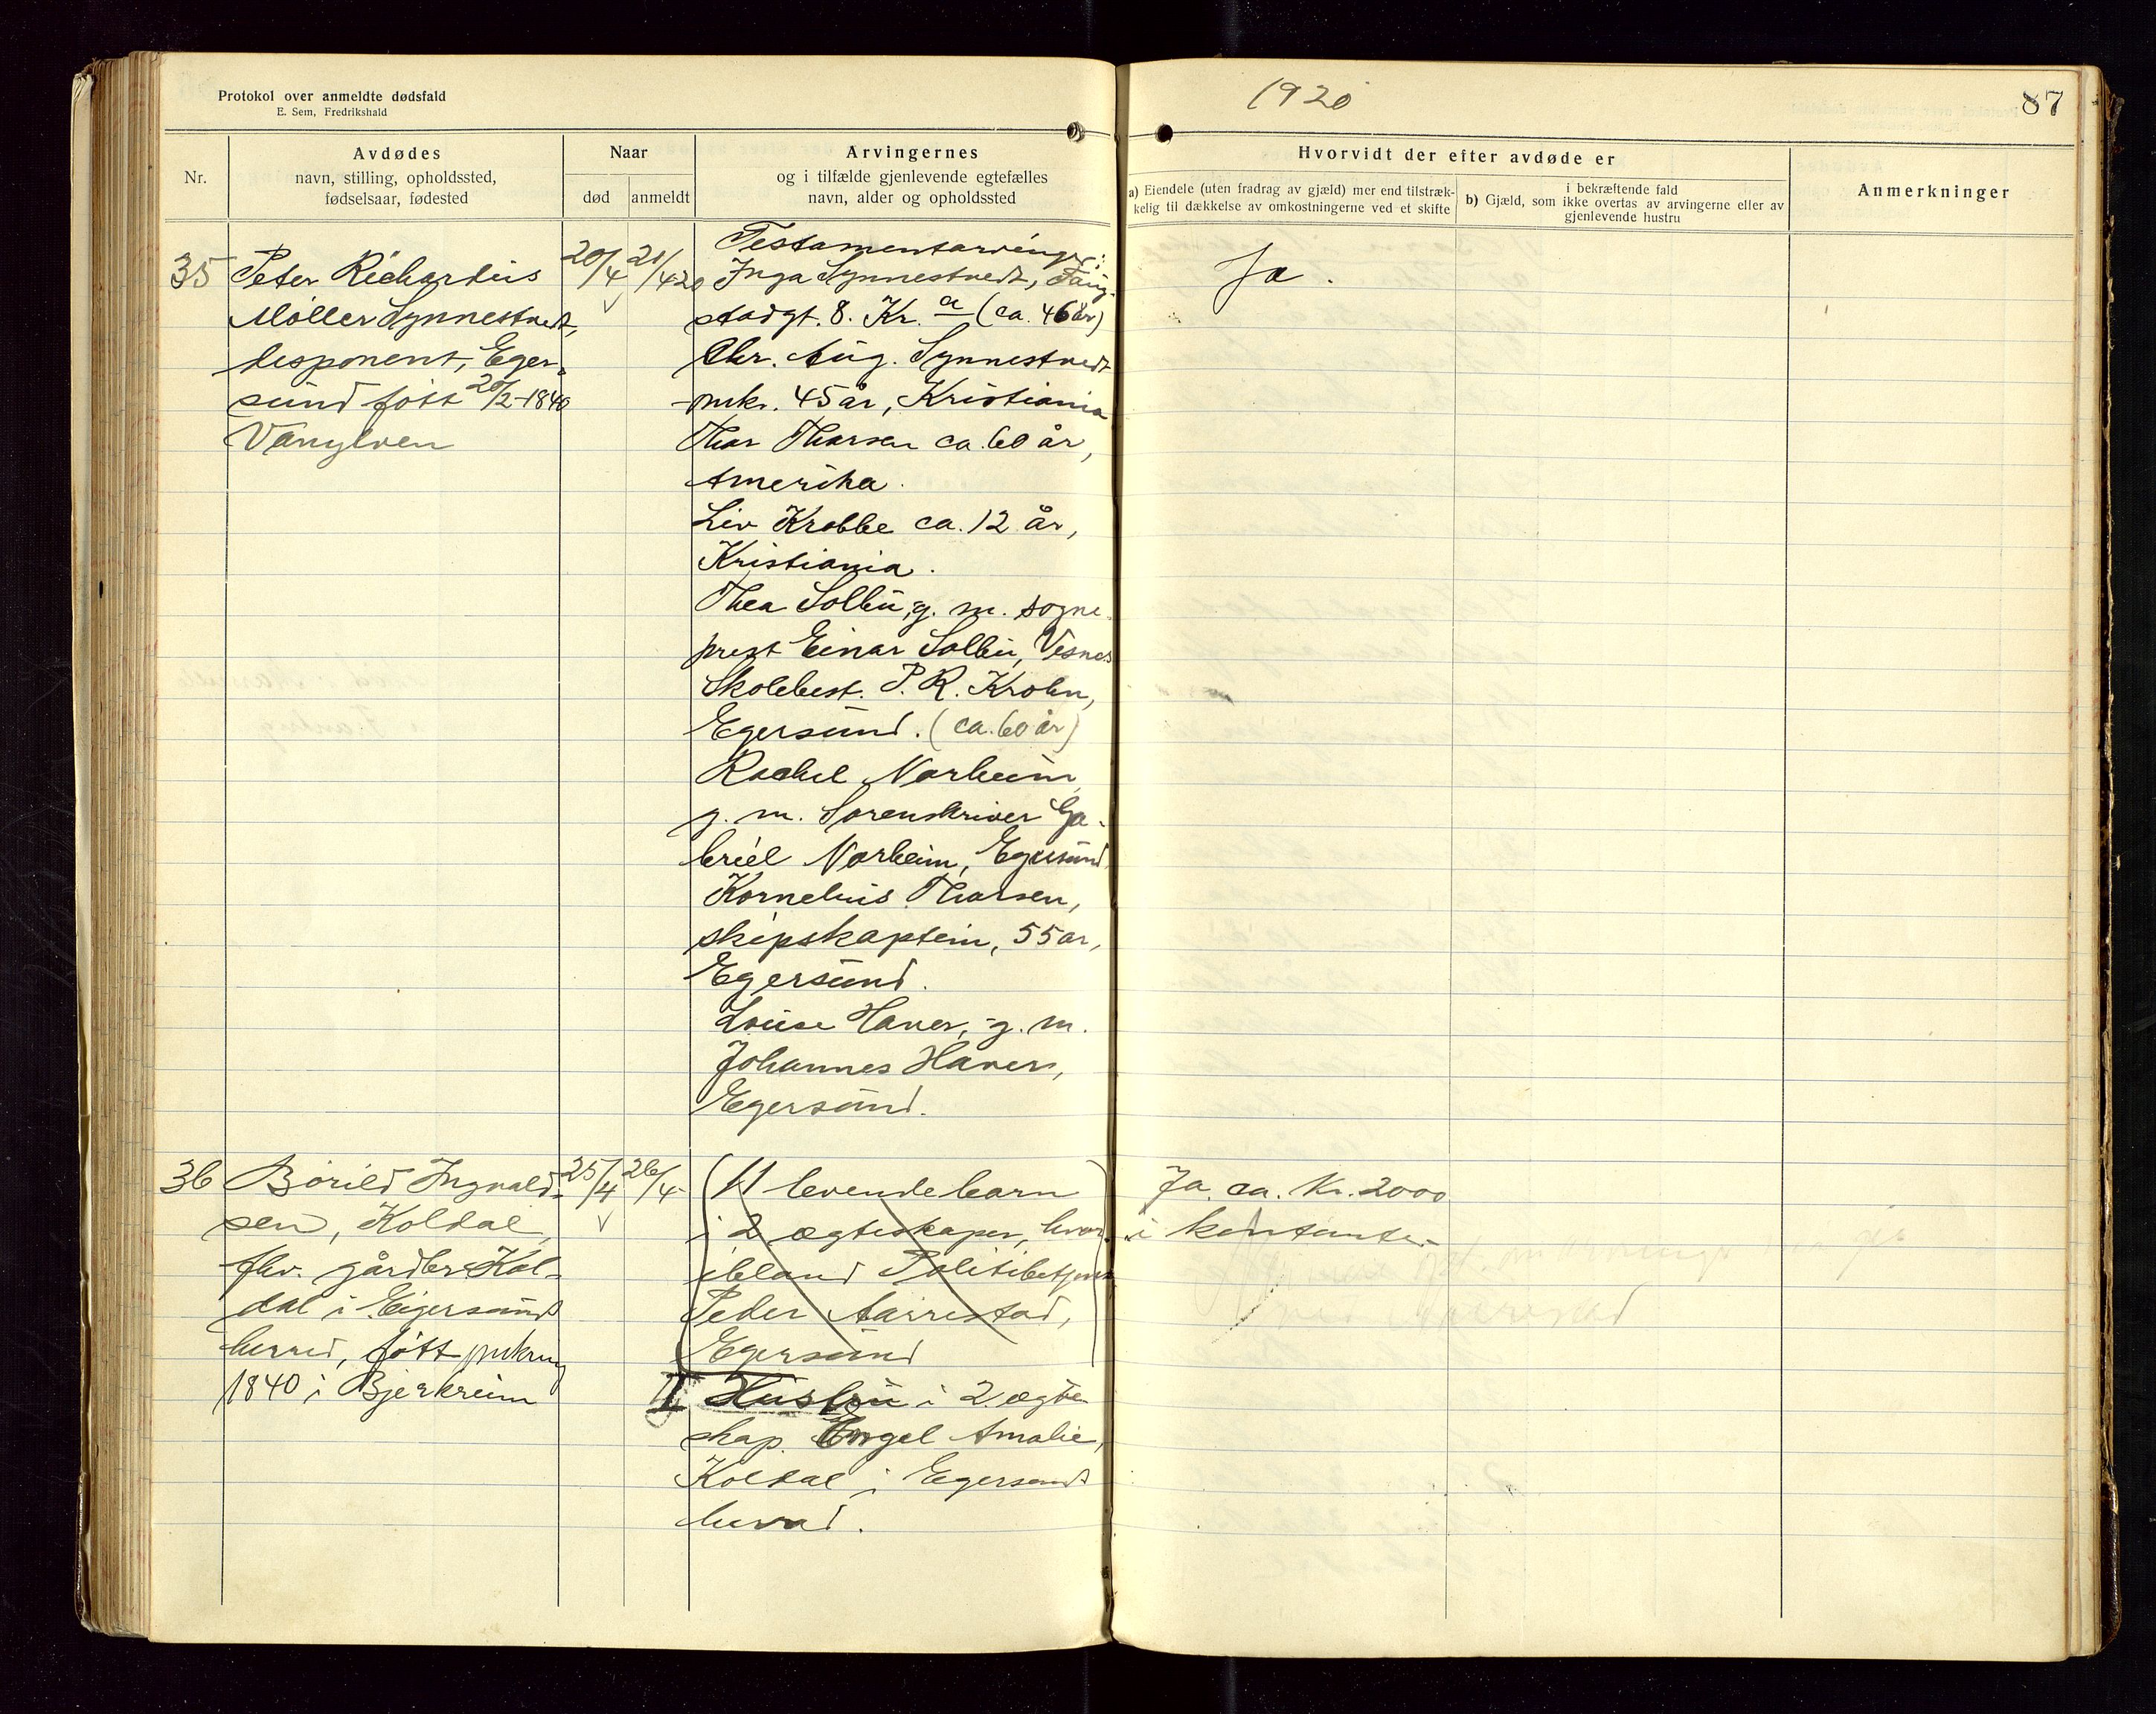 Protokol over anmeldte dødsfald
E. Sem, Fredrikshald
1920
87
Nr.
Avdødes
navn, stilling, opholdssted,
fødselsaar, fødested
Naar
død
anmeldt
Arvingernes
og i tilfælde gjenlevende egtefælles
navn, alder og opholdssted
Hvorvidt der efter avdøde er
a) Eiendele (uten fradrag av gjæld) mer end tilstræk-
kelig til dækkelse av omkostningerne ved et skifte
b) Gjæld, som i bekræftende fald
ikke overtas av arvingerne eller av
gjenlevende hustru
Anmerkninger
35
Peter Richardus
Møller Synnestvedt,
disponent, Eger-
sund født 20/2-1840
Vanylven
20/4
21/4 20
Testamentarvinger:
Inga Synnestvedt, Taug-
stadgt. 8. Kr. a (ca. 46 år)
Chr. Aug. Synnestvedt
45 år, Kristiania
Thor Thorsen ca. 60 år,
Amerika.
Liv Krabbe ca. 12 år,
Kristiania.
Thea Solbu, g. m. sogne-
prest Einar Solbu, Vesnes
Skolebest. P. R. Krohn,
Egersund. (ca. 60 år)
Rachel Norheim
g. m. Sorenskriver Ga-
briel Norheim, Egersund
Kornelius Thorsen,
skipskaptein, 55 år,
Egersund.
Louise Haver, g. m.
Johannes Haver,
Egersund.
Ja.
36
Børild Ingvald-
sen, Koldal,
fhv. gårdbr. Kol-
dal i Eigersund
herred, født
1840 i Bjerkreim
25/4
26/4
(11 levende barn
i 2 ægteskaper, hvor-
iblandt Politibetjent
Peder Aarrestad,
Egersund
I Hustru i 2 ægte-
skap. Engel Amalie,
Koldal i Egersund
herred.
Ja. ca. Kr. 2000
i kontanter.